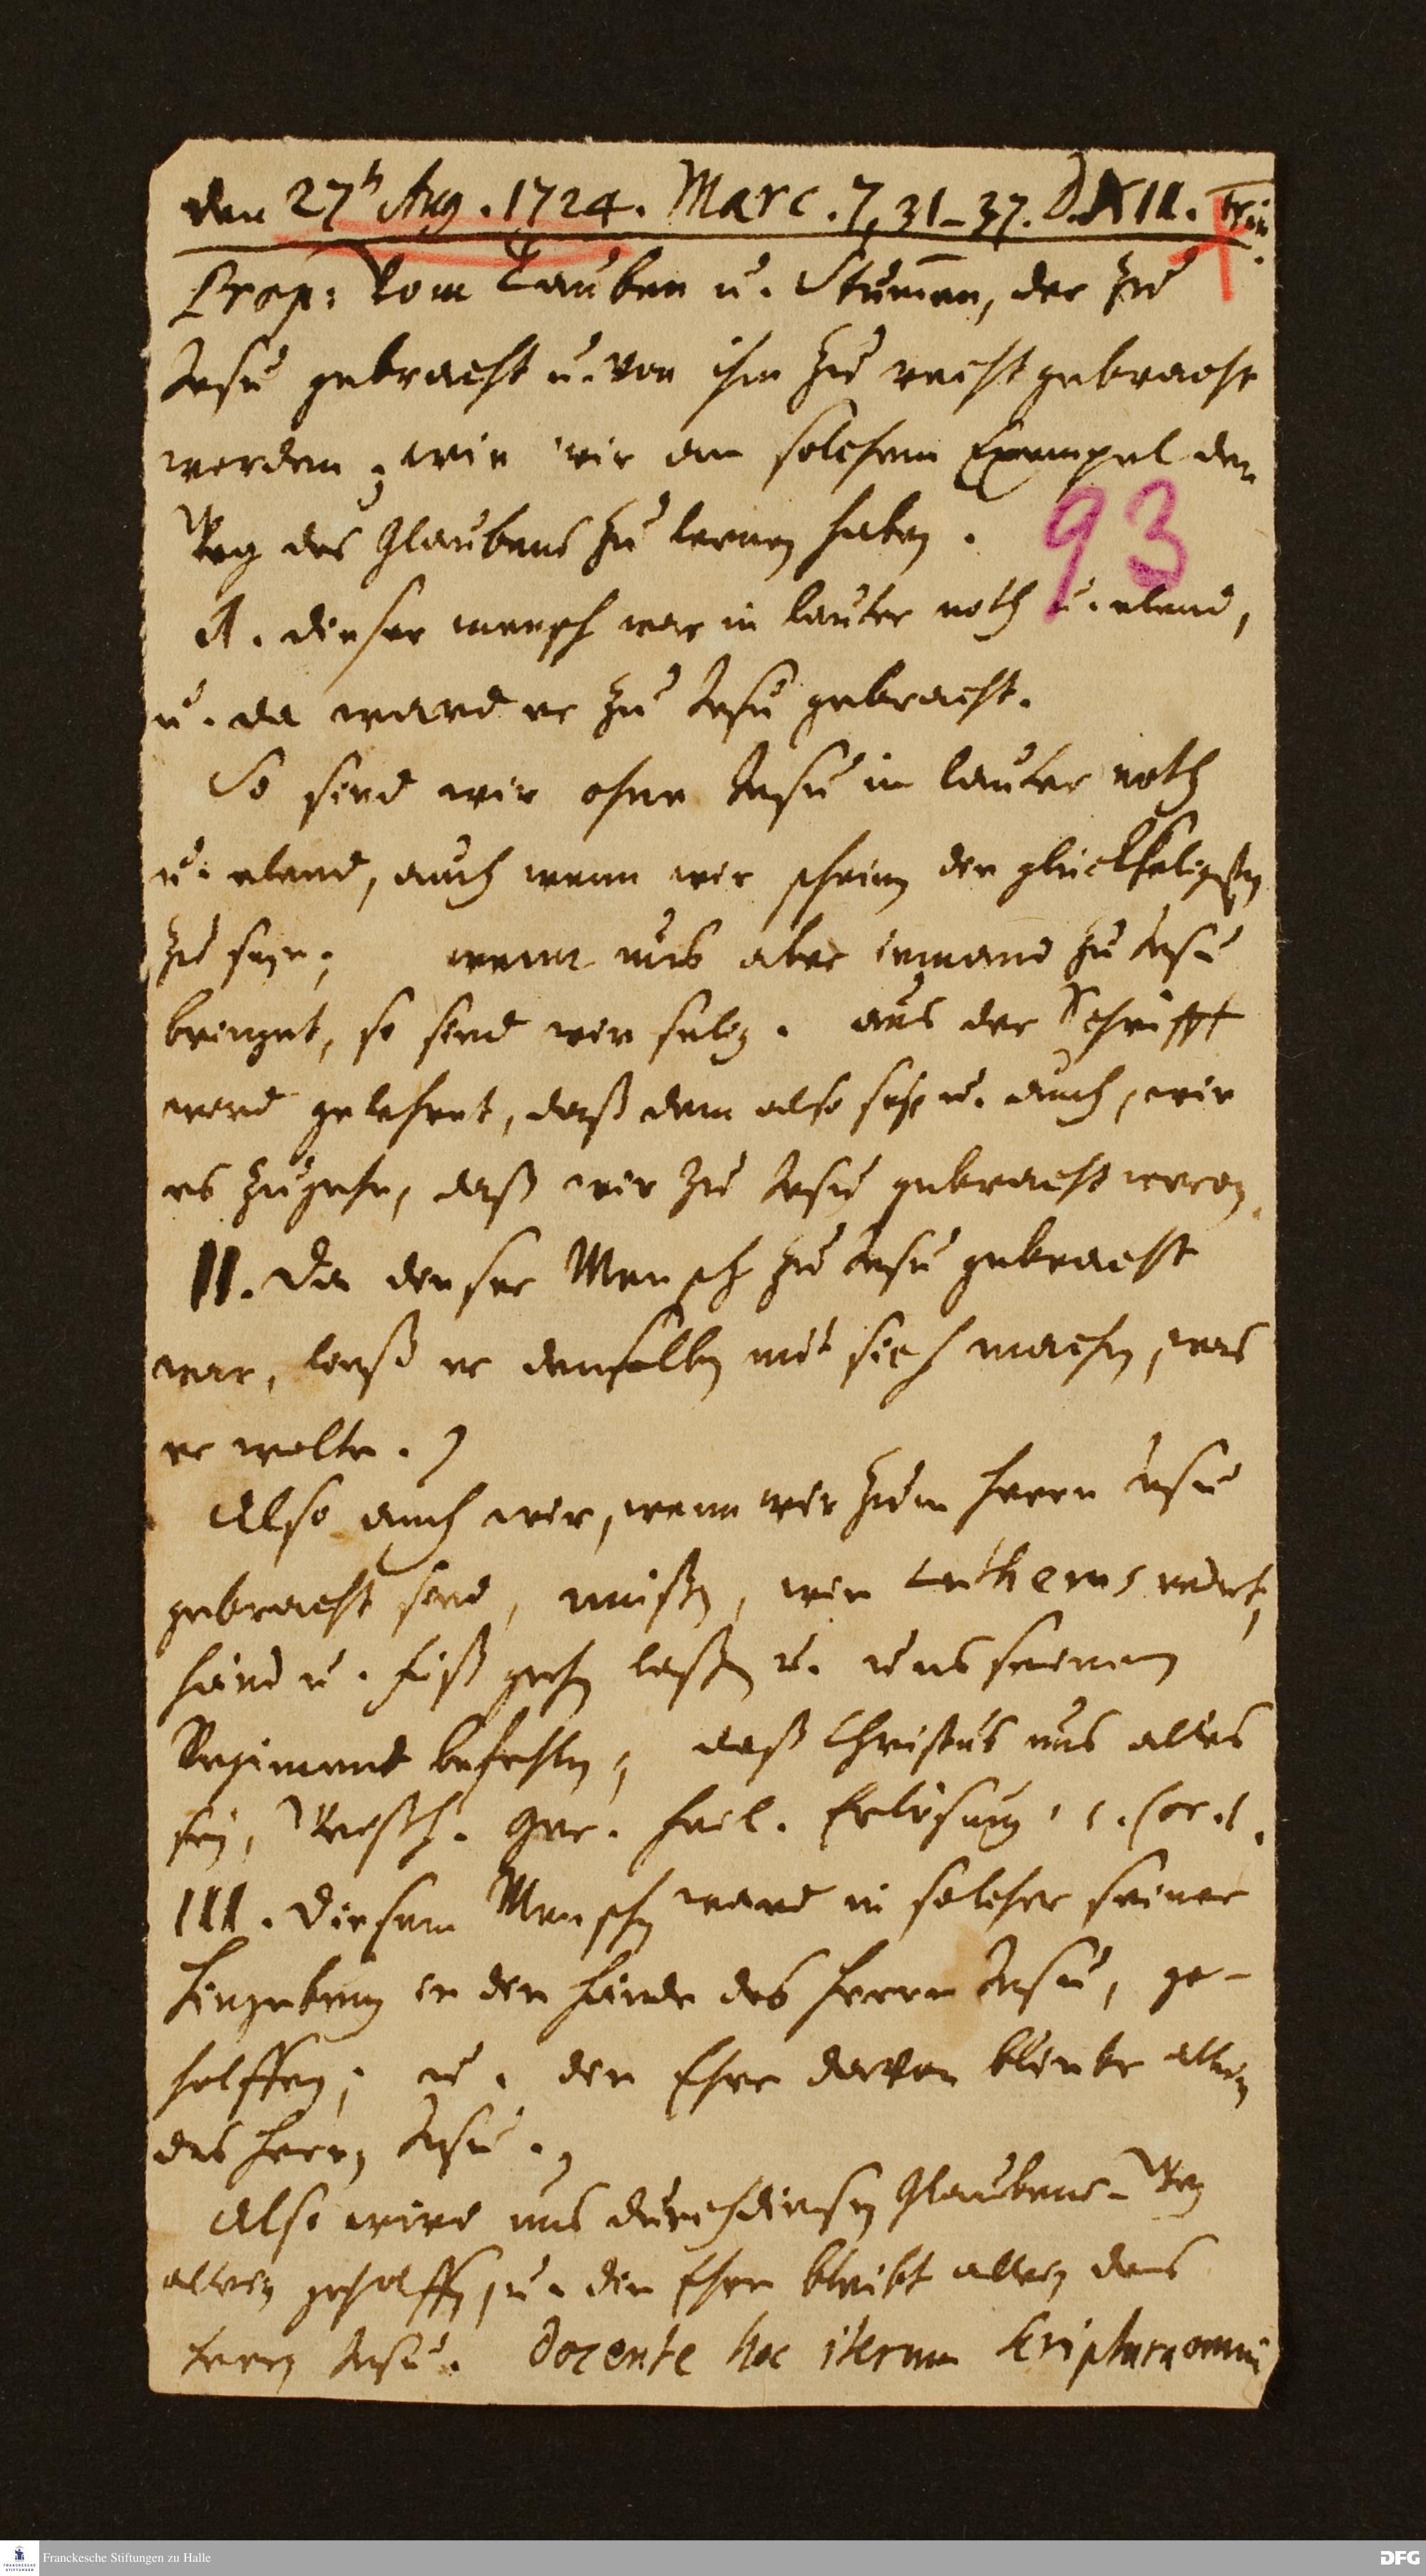 den 27t Aug. 1724. Marc. 7, 31–37. D. XII. Trin.
Prop: Vom Tauben u. Stum̄en, der zu
Jesu gebracht u. von ihm zu recht gebracht
worden; wie wir an solchem Exempel den
Weg des Glaubens zu lernen haben.
93
I. dieser mensch war in lauter noth u. elend,
u. da ward er zu Jesu gebracht.
So sind wir ohne Jesu in lauter noth
u. elend, auch wenn wir scheinen die glückseligsten
zu seyn; wenn uns aber iemand zu Jesu
bringet, so sind wir selig. aus der Schrifft
ward gelehret, daß dem also sey u. auch, wie
es zugehe, daß wir zu Jesu gebracht werden.
II. Da dieser Mensch zu Jesu gebracht
war, ließ er denselben mit sich machen, was
er wolte.
Also auch wir, wenn wir zum Herrn Jesu
gebracht sind, müßen, wie Lutherus redet,
Händ u. Füß gehen laßen u. uns seinem
Regiment befehlen, daß Christus uns alles
sey, Weißh. Ger. Heil. Erlösung. 1. Cor. 1.
III. Diesem Menschen ward in solcher seiner
Hingebung in die Hände des Herrn Jesu, ge-
holffen; u. die Ehre davon bliebe allein
des Herrn Jesu.
Also wird uns durch diesen Glaubens-Weg
allein geholffen, u. die Ehre bleibt allein des
Herrn Jesu. Docente hoc iterum Scriptura omni
Franckesche Stiftungen zu Halle
DFG